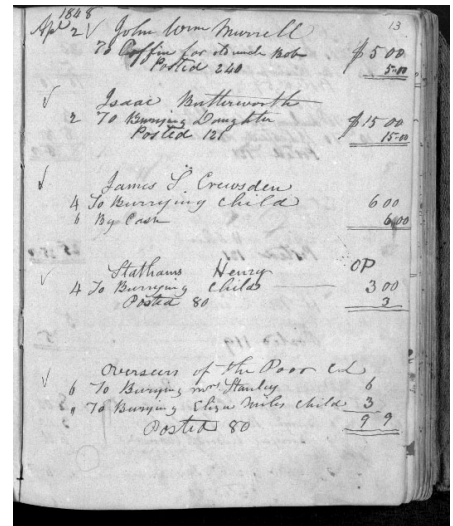 1848 13
Apl 2 √ John Wm Murrell
To Coffin for Bob $5 00
Posted 240 5.00
√ Isaac Butterworth
2 To Burrying Daughter $15 00
Posted 121 15.00
√ James S. Crewsden
4 To Burrying Child 6 00
6 By Cash 6.00
√ Stathams Henry OP
4 To Burrying Child 3 00
Posted 80 3
√ Overseers of the Poor
6 To Burying Mrs Stanley 6
" To Burying Eliza Miles Child 3
Posted 80 9 9